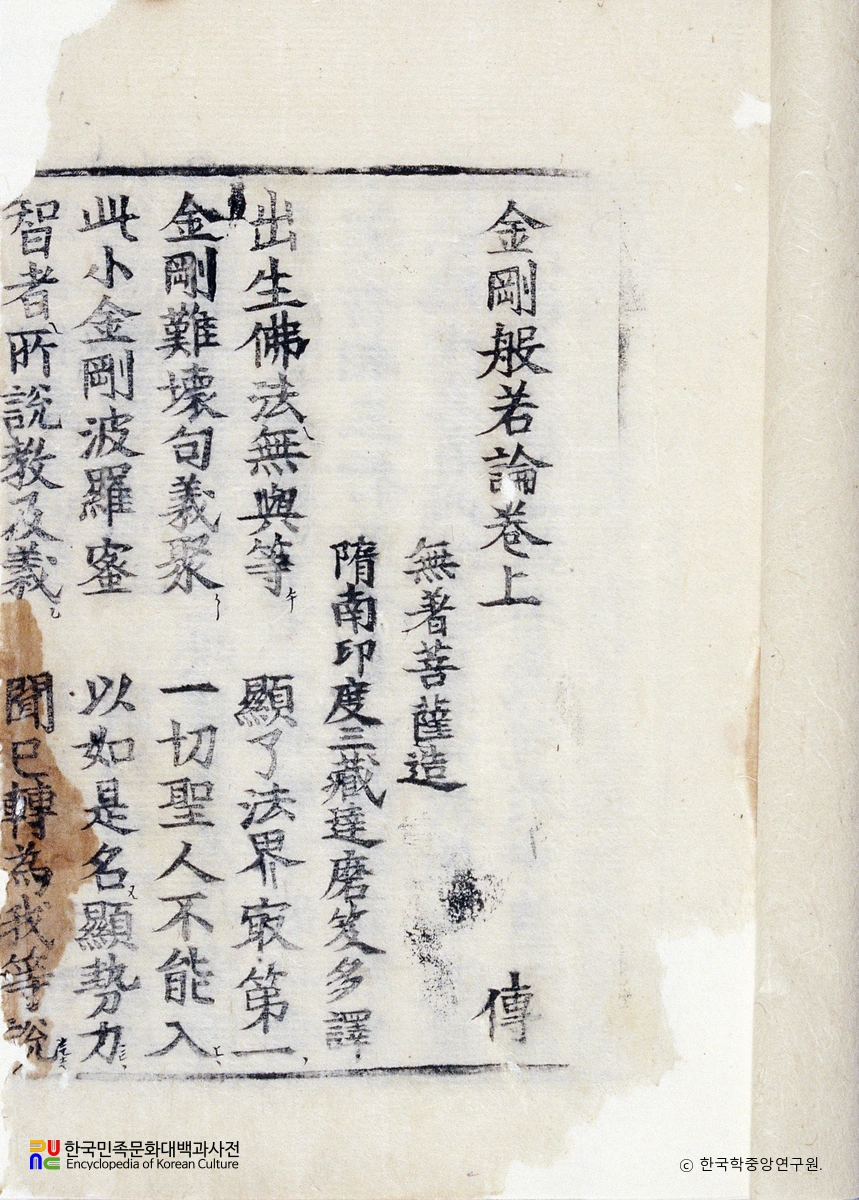 金剛般若論卷上 傳
無著菩薩造
隋南印度三藏達磨笈多譯
出生佛法無與等 顯了法界㝡第一
金剛難壞句義聚 一切聖人不能入
此小金剛波羅蜜 以如是名顯勢力
智者所說教及義 聞已轉為我等說
한국민족문화대백과사전
Encyclopedia of Korean Culture
© 한국학중앙연구원.